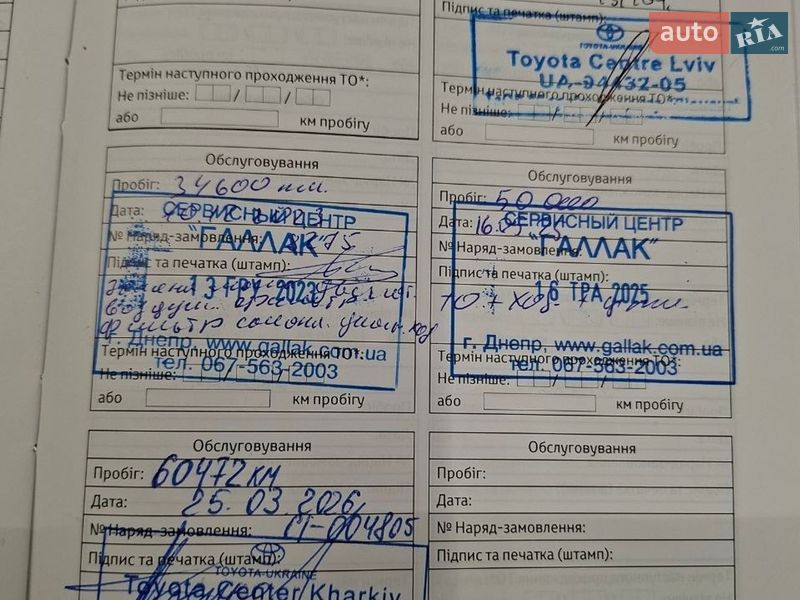 Термін наступного проходження ТО*:
Не пізніше: / /
або км пробігу
Підпис та печатка (штамп):
TOYOTA-UKRAINE
Toyota Centre Lviv
UA-94432-05
Термін наступного проходження ТО*:
Не пізніше: / /
або км пробігу
auto RIA .com
Обслуговування
Пробіг: 34600 км.
Дата:
№ Наряд-замовлення:
Підпис та печатка (штамп):
СЕРВИСНЫЙ ЦЕНТР
"ГАЛЛАК"
13 ГРУ 2023
фильтр салона
г. Днепр, www.gallak.com.ua
Термін наступного проходження ТО*:
тел. 067-563-2003
Не пізніше: / /
або км пробігу
Обслуговування
Пробіг: 50 000
Дата: 16.05.25
СЕРВИСНЫЙ ЦЕНТР
№ Наряд-замовлення:
"ГАЛЛАК"
Підпис та печатка (штамп):
16 ТРА 2025
г. Днепр, www.gallak.com.ua
Термін наступного проходження ТО*:
тел. 067-563-2003
Не пізніше: / /
або км пробігу
Обслуговування
Пробіг: 60472 км
Дата: 25.03.2026
№ Наряд-замовлення: П-004805
Підпис та печатка (штамп):
TOYOTA-UKRAINE
Toyota Center Kharkiv
Обслуговування
Пробіг:
Дата:
№ Наряд-замовлення:
Підпис та печатка (штамп):